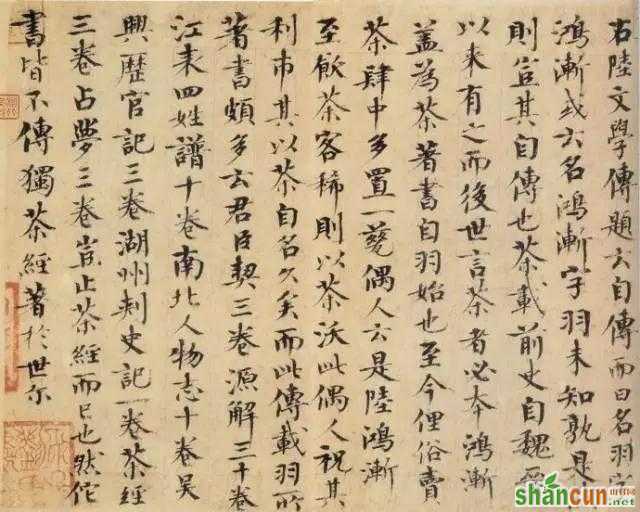 右陸文學傳題云自傳而曰名羽字
鴻漸或云名鴻漸字羽未知孰是
則豈其自傳也茶載前史自魏晉
以來有之而後世言茶者必本鴻漸
盖為茶著書自羽始也至今俚俗賣
茶肆中多置一甆偶人云是陸鴻漸
至飲茶客稀則以茶沃此偶人祝其
利市其以茶自名久矣而此傳載羽所
著書頗多云君臣契三卷源解三十卷
江表四姓譜十卷南北人物志十卷吳
興歷官記三卷湖州刺史記一卷茶經
三卷占夢三卷豈止茶經而已也然佗
書皆不傳獨茶經著於世尔
shancun
.net